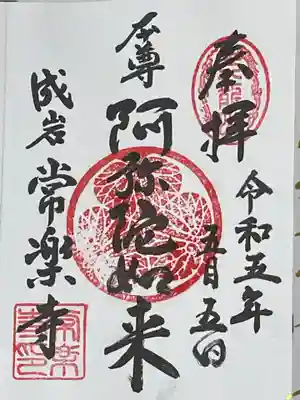 奉拝
令和五年
五月五日
本尊
阿弥陀如来
成岩 常楽寺
常楽
寺印